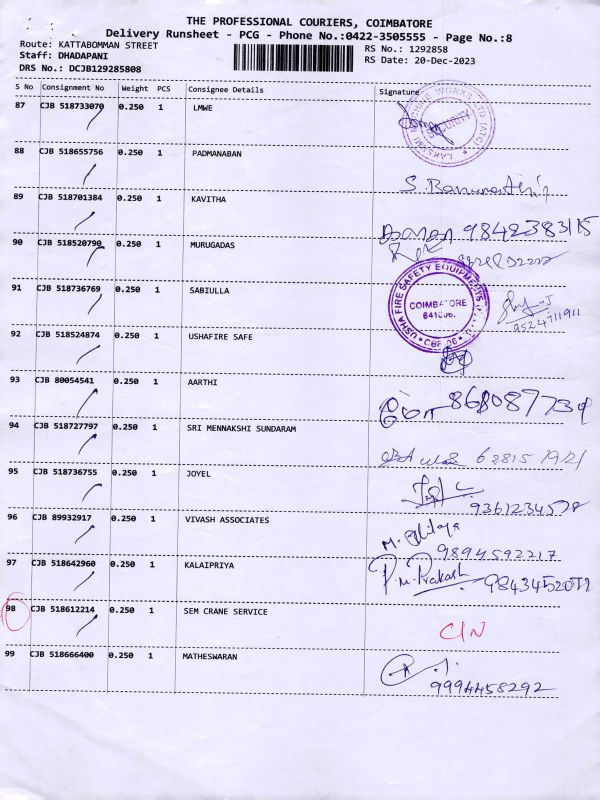 THE PROFESSIONAL COURIERS, COIMBATORE
Delivery Runsheet - PCG - Phone No.:0422-3505555 - Page No.:8
Route: KATTABOMMAN STREET
RS No.: 1292858
Staff: DHADAPANI
RS Date: 20-Dec-2023
DRS No.: DCJB129285808
S No Consignment No Weight PCS Consignee Details Signature
87 CJB 518733070 0.250 1 LMWE
SECURITY
88 CJB 518655756 0.250 1 PADMANABAN
89 CJB 518701384 0.250 1 KAVITHA
9842383115
90 CJB 518520790 0.250 1 MURUGADAS
91 CJB 518736769 0.250 1 SABIULLA
USHA FIRE SAFETY EQUIPMENTS
COIMBATORE
641006.
9524711911
92 CJB 518524874 0.250 1 USHAFIRE SAFE
93 CJB 80054541 0.250 1 AARTHI
94 CJB 518727797 0.250 1 SRI MENNAKSHI SUNDARAM
95 CJB 518736755 0.250 1 JOYEL
96 CJB 89932917 0.250 1 VIVASH ASSOCIATES
9894592217
97 CJB 518642960 0.250 1 KALAIPRIYA
P.M. Prakash
98 CJB 518612214 0.250 1 SEM CRANE SERVICE
C/N
99 CJB 518666400 0.250 1 MATHESWARAN
9994458292